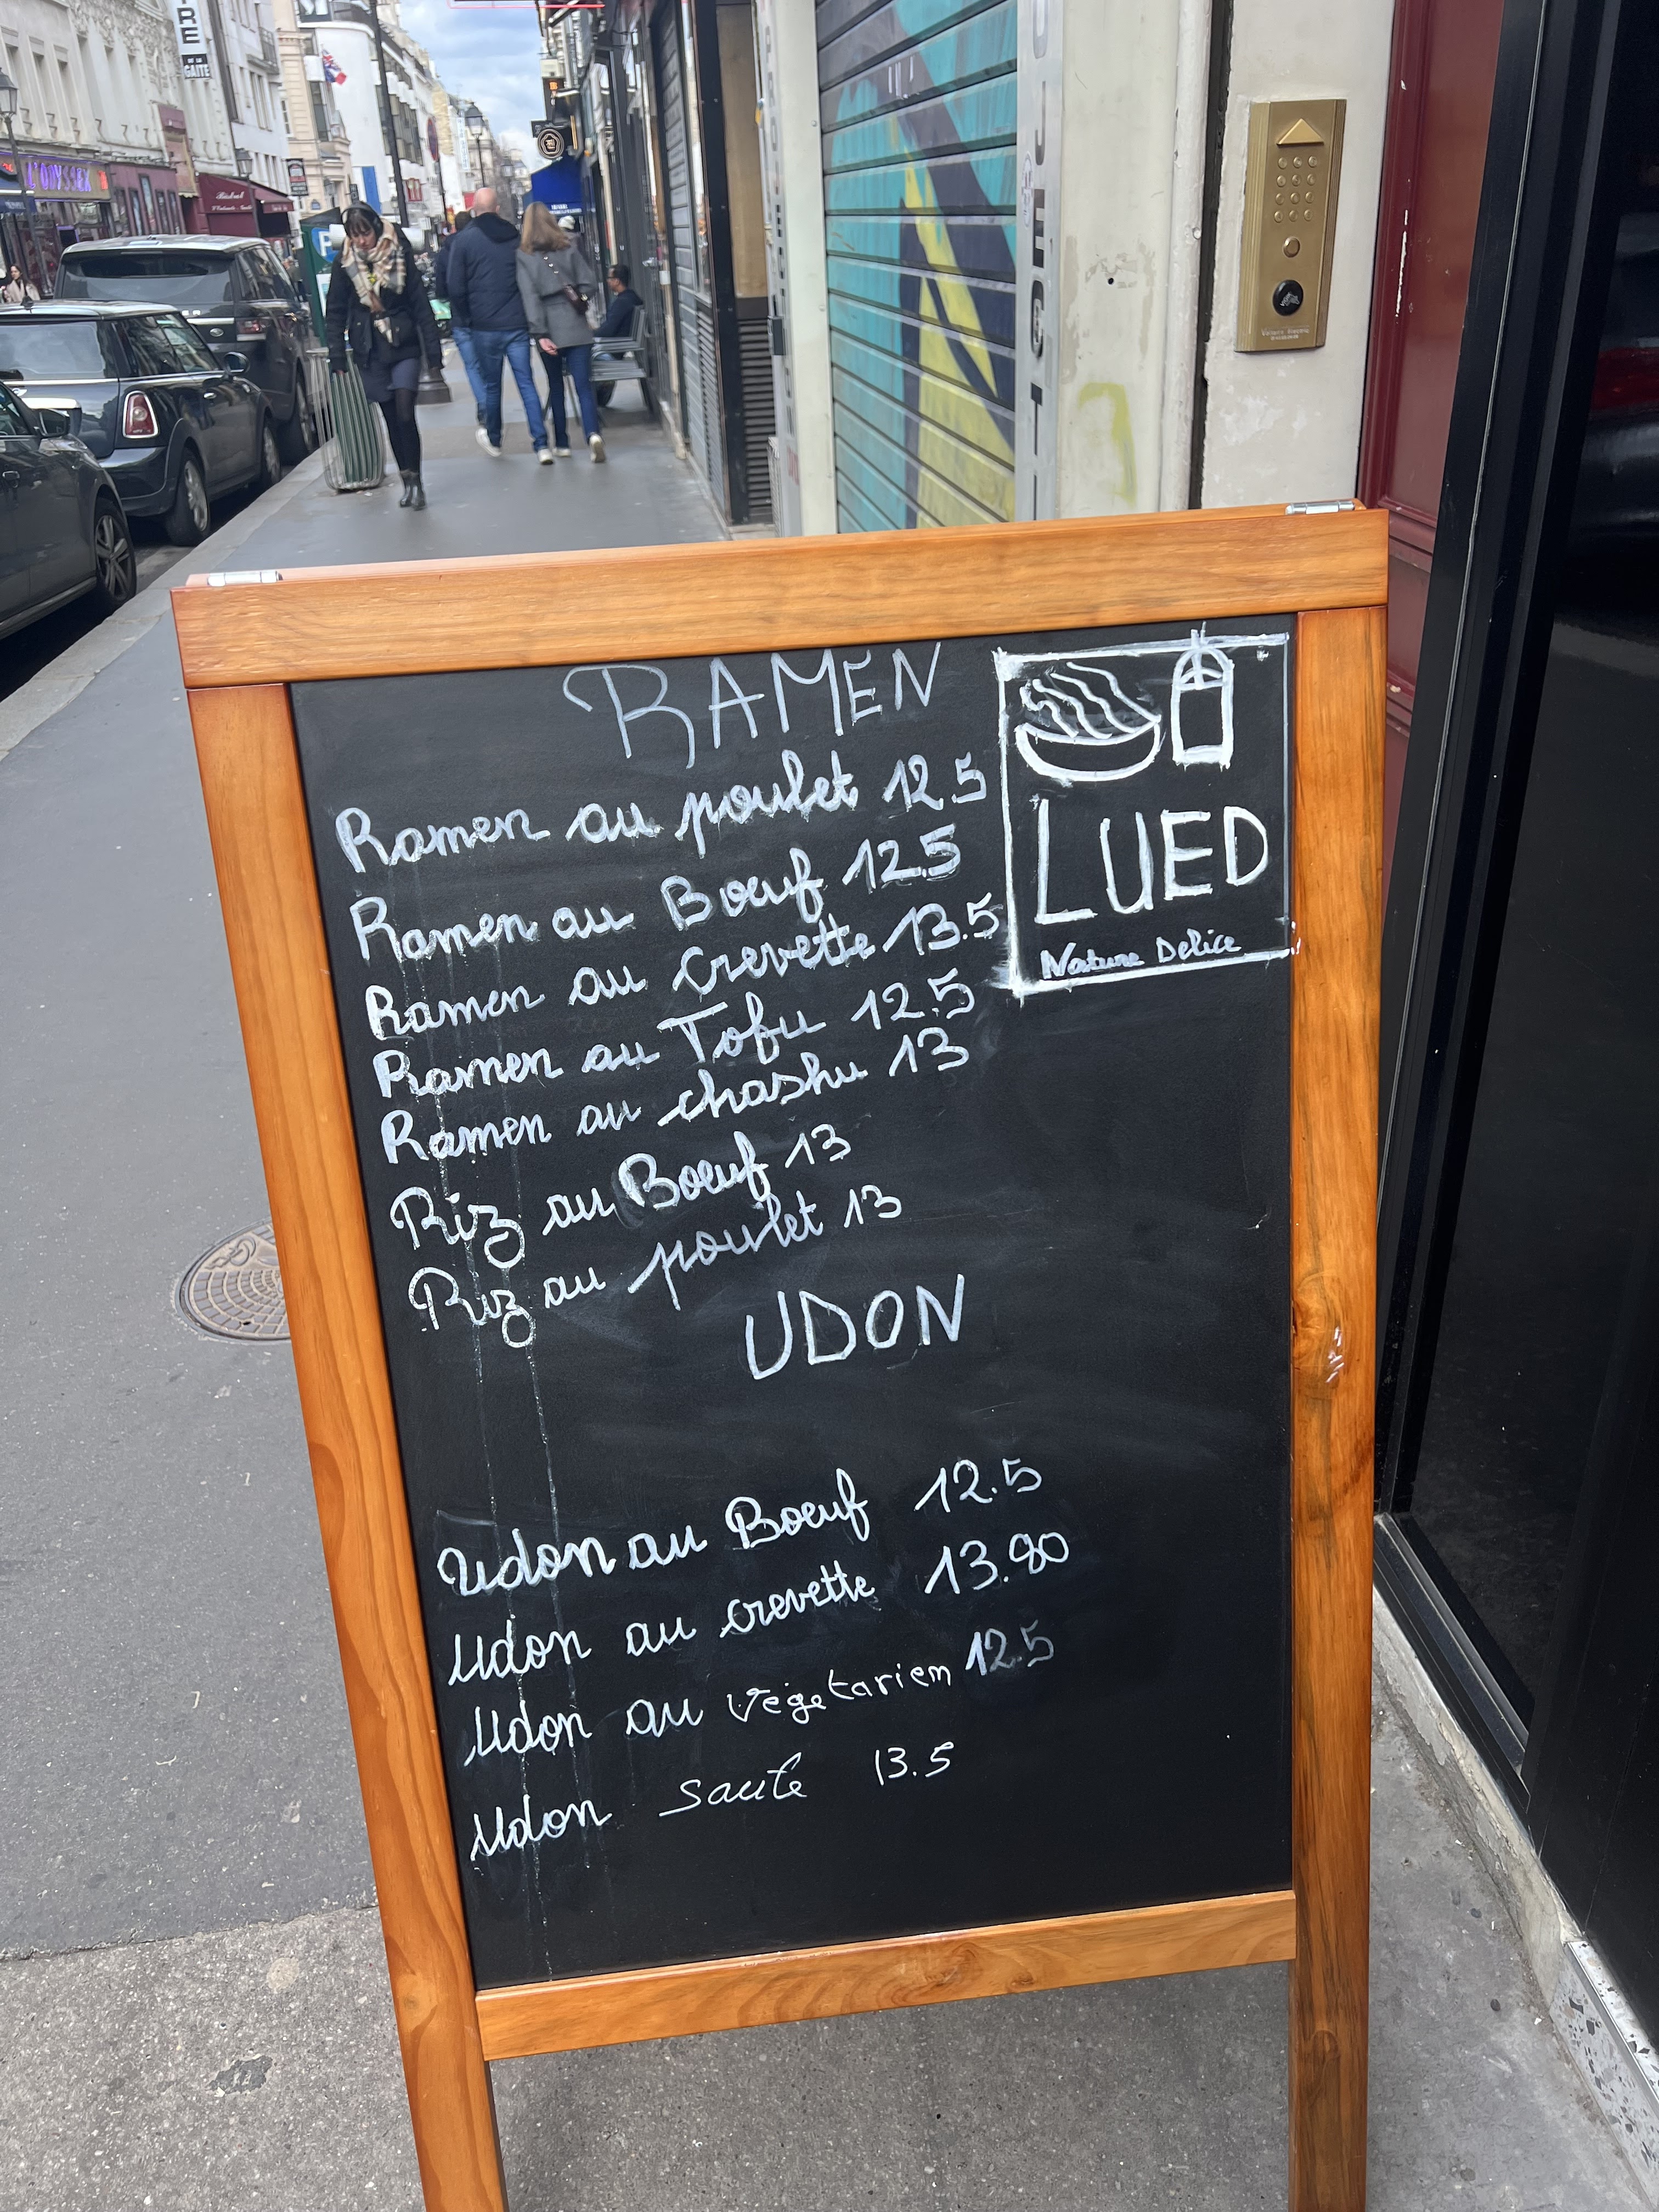 RE
DE LA
GAITÉ
L'ODYSSEX
Bistrot
P
RAMEN
Ramen au poulet 12.5
Ramen au Boeuf 12.5
Ramen au crevette 13.5
Ramen au Tofu 12.5
Ramen au chashu 13
Riz au Boeuf 13
Riz au poulet 13
LUED
Nature Delice
UDON
Udon au Boeuf 12.5
Udon au crevette 13.90
Udon au végetarien 12.5
Udon sauté 13.5